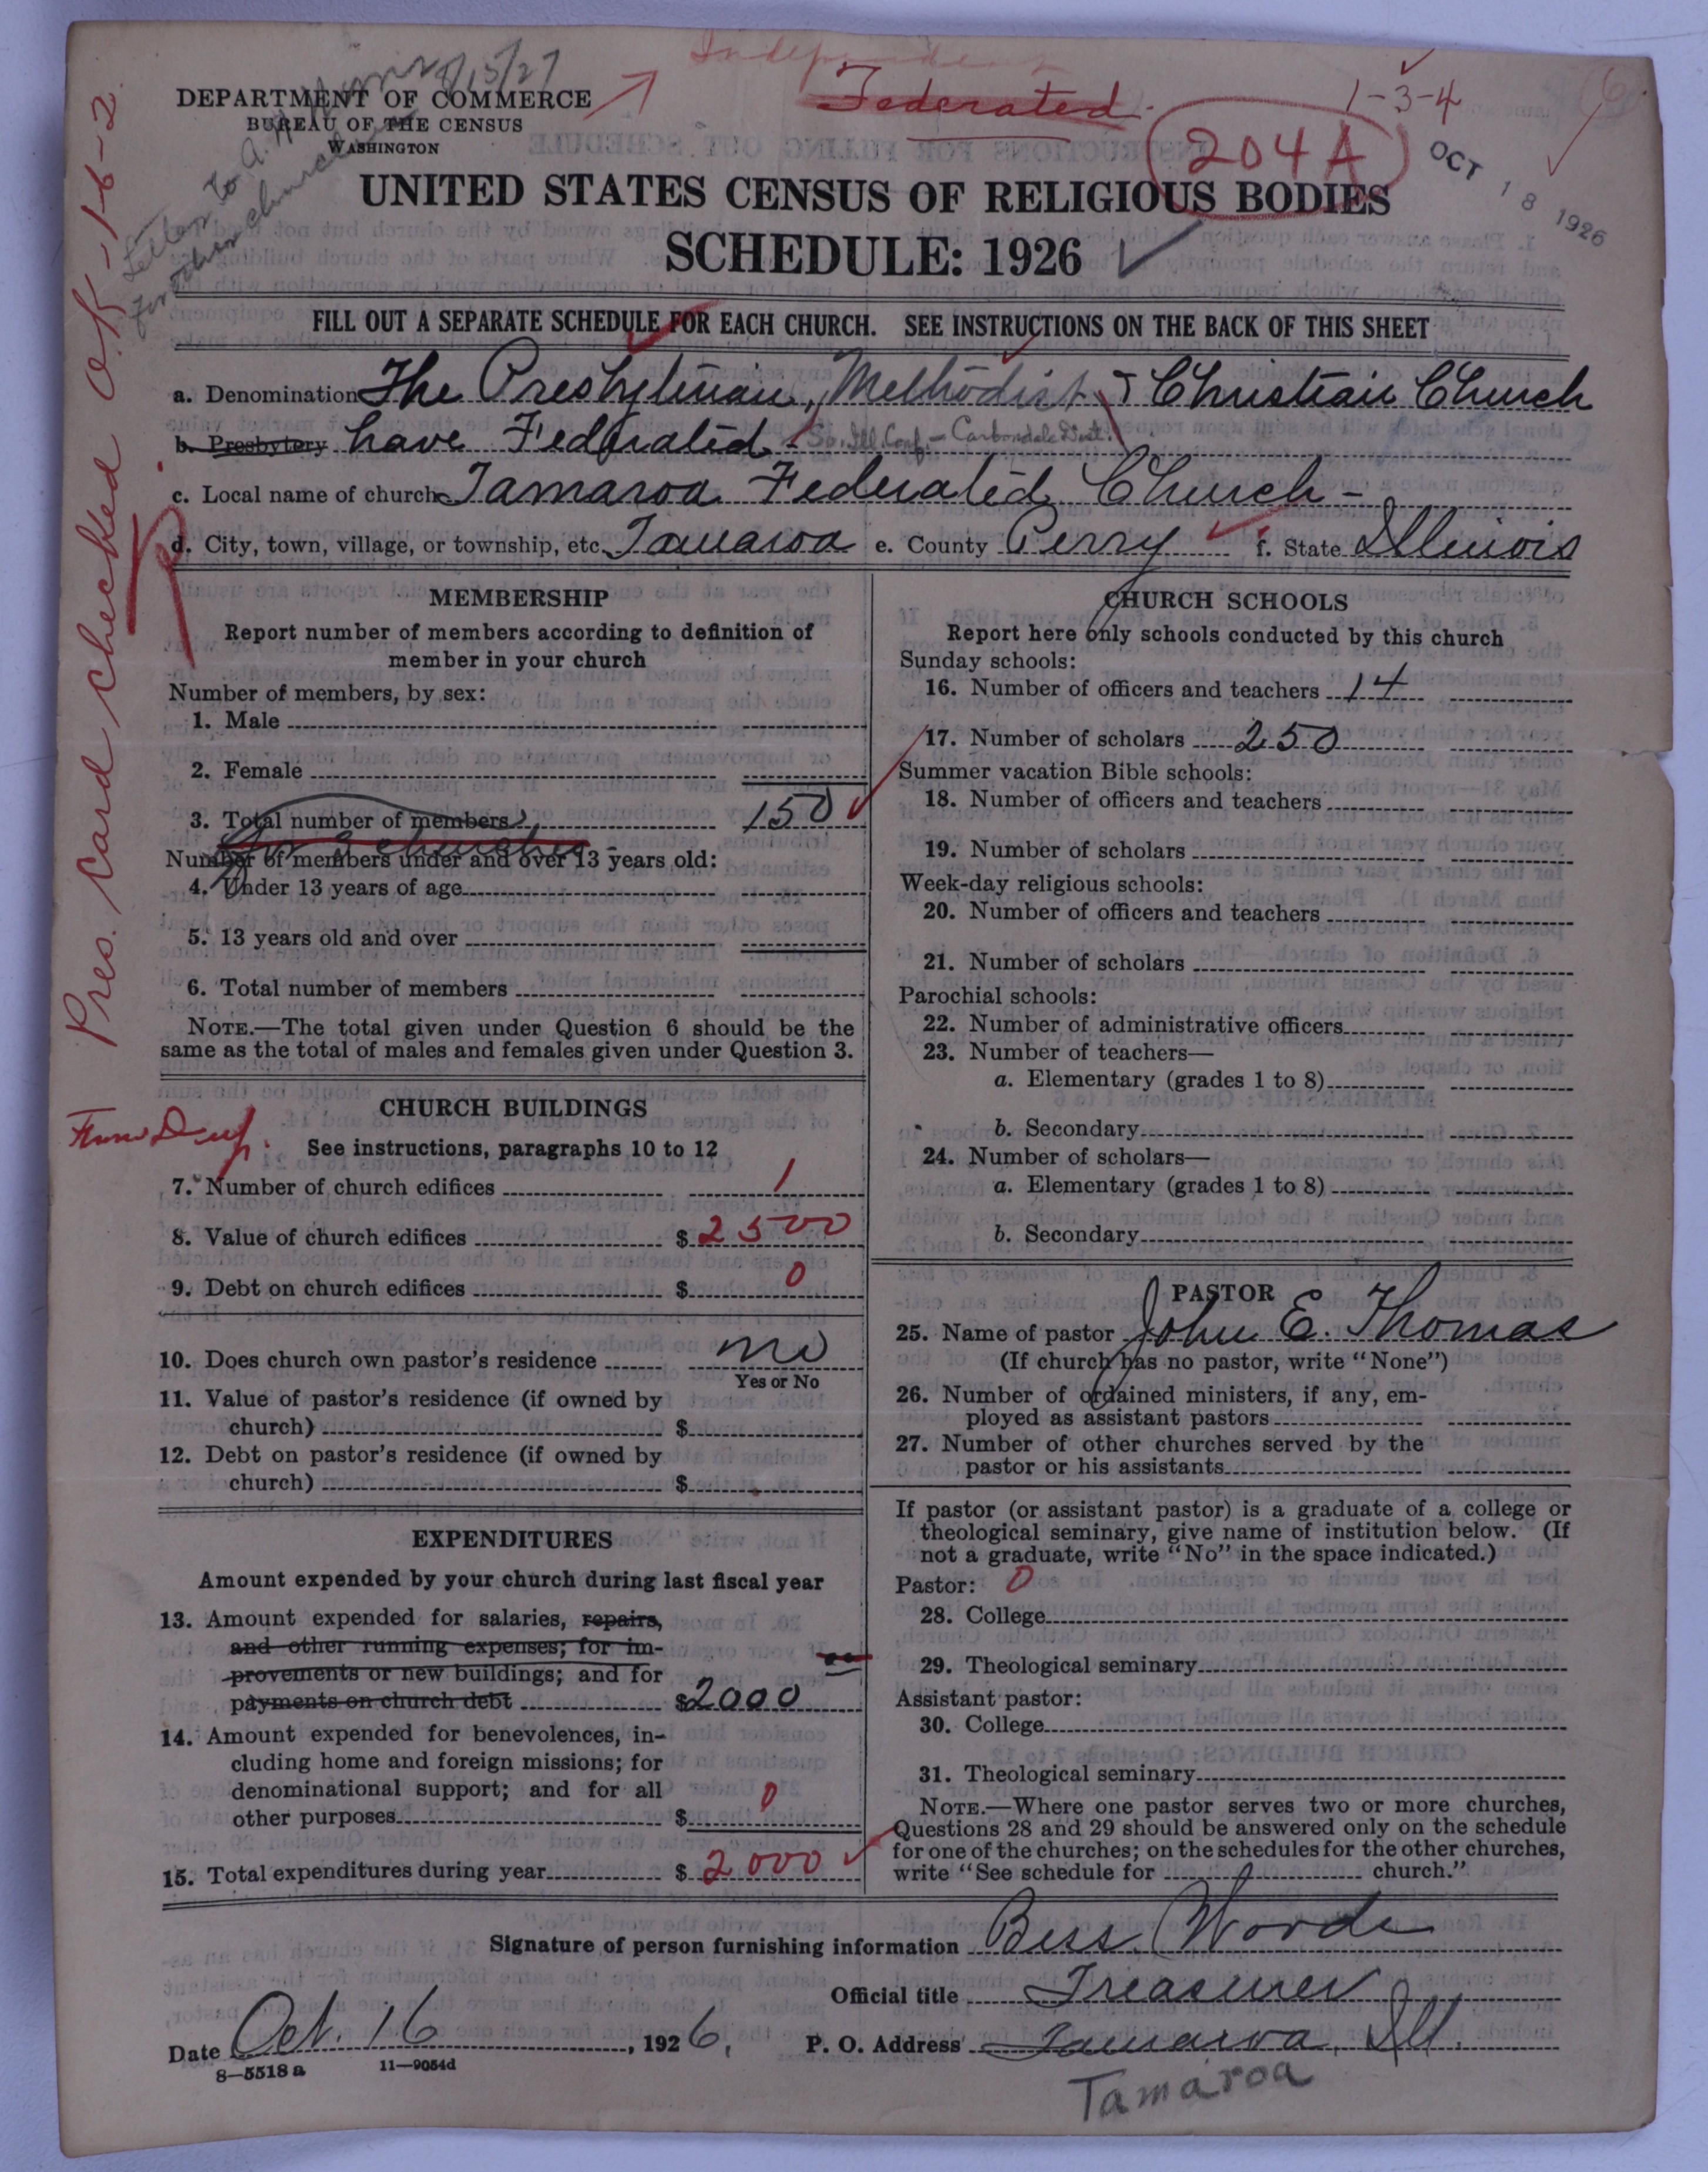 Independent
Federated
1-3-4
204A
OCT 18 1926
Letter to
for other churches
8/15/27
Pres. card checked O.K.-16-2
DEPARTMENT OF COMMERCE
BUREAU OF THE CENSUS
WASHINGTON
UNITED STATES CENSUS OF RELIGIOUS BODIES
SCHEDULE: 1926
FILL OUT A SEPARATE SCHEDULE FOR EACH CHURCH. SEE INSTRUCTIONS ON THE BACK OF THIS SHEET
a. Denomination The Presbyterian, Methodist & Christian Church
b. Presbytery have Federated - So. Ill. Conf. - Carbondale Dist.
c. Local name of church Tamaroa Federated Church -
d. City, town, village, or township, etc. Tamaroa e. County Perry f. State Illinois
MEMBERSHIP
Report number of members according to definition of
member in your church
Number of members, by sex:
1. Male
2. Female
3. Total number of members 150
for 3 churches
Number of members under and over 13 years old:
4. Under 13 years of age
5. 13 years old and over
6. Total number of members
NOTE.—The total given under Question 6 should be the
same as the total of males and females given under Question 3.
CHURCH BUILDINGS
See instructions, paragraphs 10 to 12
7. Number of church edifices 1
8. Value of church edifices $ 2500
9. Debt on church edifices $ 0
10. Does church own pastor's residence no
Yes or No
11. Value of pastor's residence (if owned by
church) $
12. Debt on pastor's residence (if owned by
church) $
EXPENDITURES
Amount expended by your church during last fiscal year
13. Amount expended for salaries, repairs,
and other running expenses; for im-
provements or new buildings; and for
payments on church debt $2000
14. Amount expended for benevolences, in-
cluding home and foreign missions; for
denominational support; and for all
other purposes $ 0
15. Total expenditures during year $ 2000
CHURCH SCHOOLS
Report here only schools conducted by this church
Sunday schools:
16. Number of officers and teachers 14
17. Number of scholars 250
Summer vacation Bible schools:
18. Number of officers and teachers
19. Number of scholars
Week-day religious schools:
20. Number of officers and teachers
21. Number of scholars
Parochial schools:
22. Number of administrative officers
23. Number of teachers—
a. Elementary (grades 1 to 8)
b. Secondary
24. Number of scholars—
a. Elementary (grades 1 to 8)
b. Secondary
PASTOR
25. Name of pastor John E. Thomas
(If church has no pastor, write "None")
26. Number of ordained ministers, if any, em-
ployed as assistant pastors
27. Number of other churches served by the
pastor or his assistants
If pastor (or assistant pastor) is a graduate of a college or
theological seminary, give name of institution below. (If
not a graduate, write "No" in the space indicated.)
Pastor: 0
28. College
29. Theological seminary
Assistant pastor:
30. College
31. Theological seminary
NOTE.—Where one pastor serves two or more churches,
Questions 28 and 29 should be answered only on the schedule
for one of the churches; on the schedules for the other churches,
write "See schedule for church."
Signature of person furnishing information Bess Woods
Official title Treasurer
Date Oct. 16, 1926, P. O. Address Tamaroa, Ill.
Tamaroa
8—5518 a 11—9054d